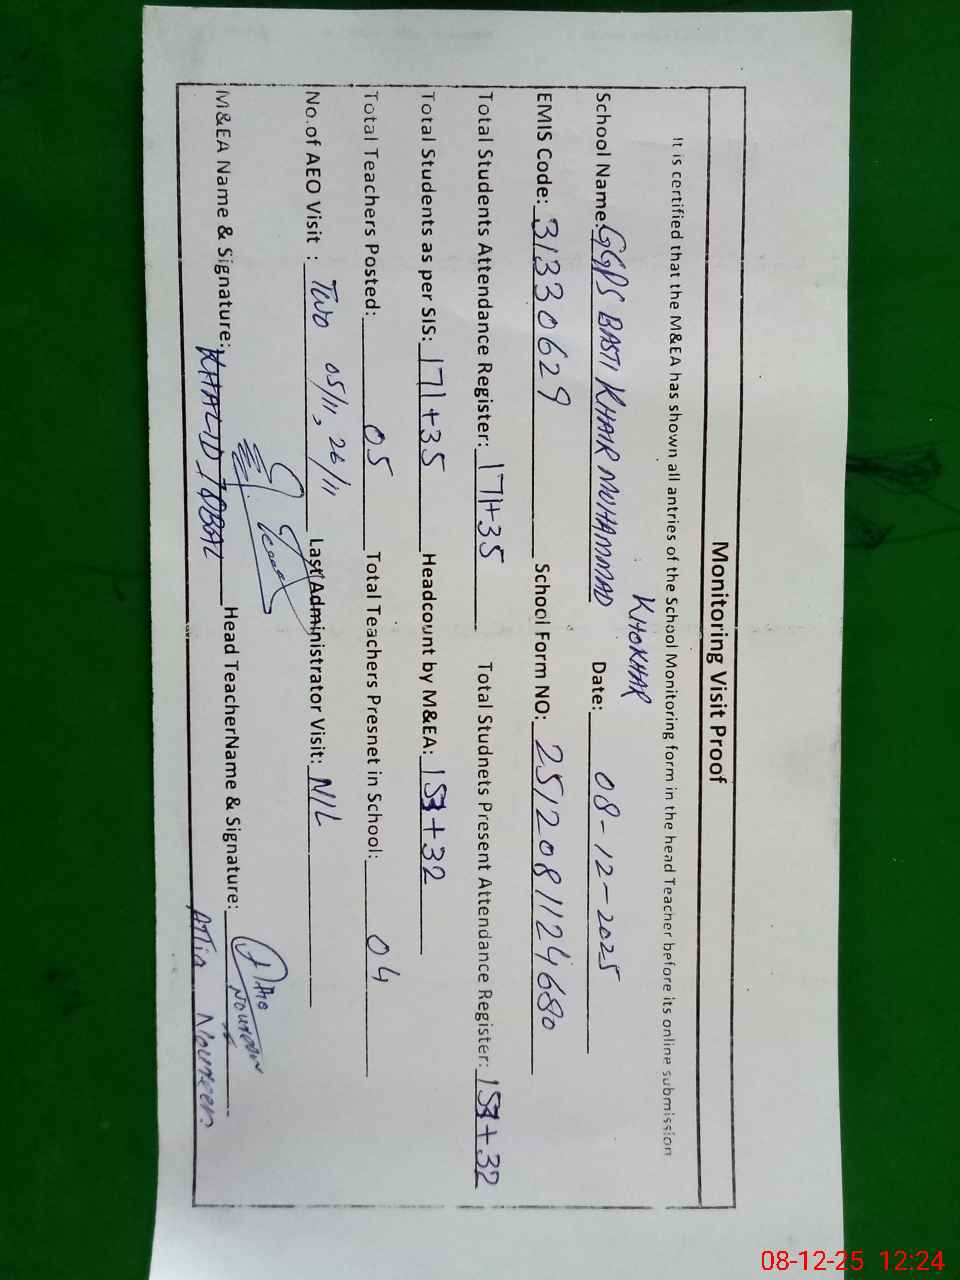 Monitoring Visit Proof
It is certified that the M&EA has shown all antries of the School Monitoring form in the head Teacher before its online submission
KHOKHAR
School Name: GGPS BASTI KHAIR MUHAMMAD Date: 08-12-2025
EMIS Code: 31330629 School Form NO: 2512081124680
Total Students Attendance Register: 171+35 Total Studnets Present Attendance Register: +32
Total Students as per SIS: 171+35 Headcount by M&EA: +32
Total Teachers Posted: 05 Total Teachers Presnet in School: 04
No.of AEO Visit : Two 05/11, 26/11 Last Administrator Visit: NIL
M&EA Name & Signature: KHALID IQBAL Head TeacherName & Signature: Attia Noureen
Attia Noureen
08-12-25 12:24